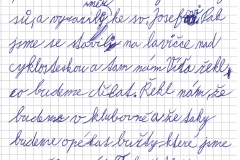 směr
sů, a vyrazili ke sv. Josefovi. Pak
jsme se stavili na lavičce nad
cyklostezkou a tam nám Víťa řekl,
co budeme dělat. Řekl nám, že
budeme v klubovně a že taky
budeme opékat buřty, které jsme